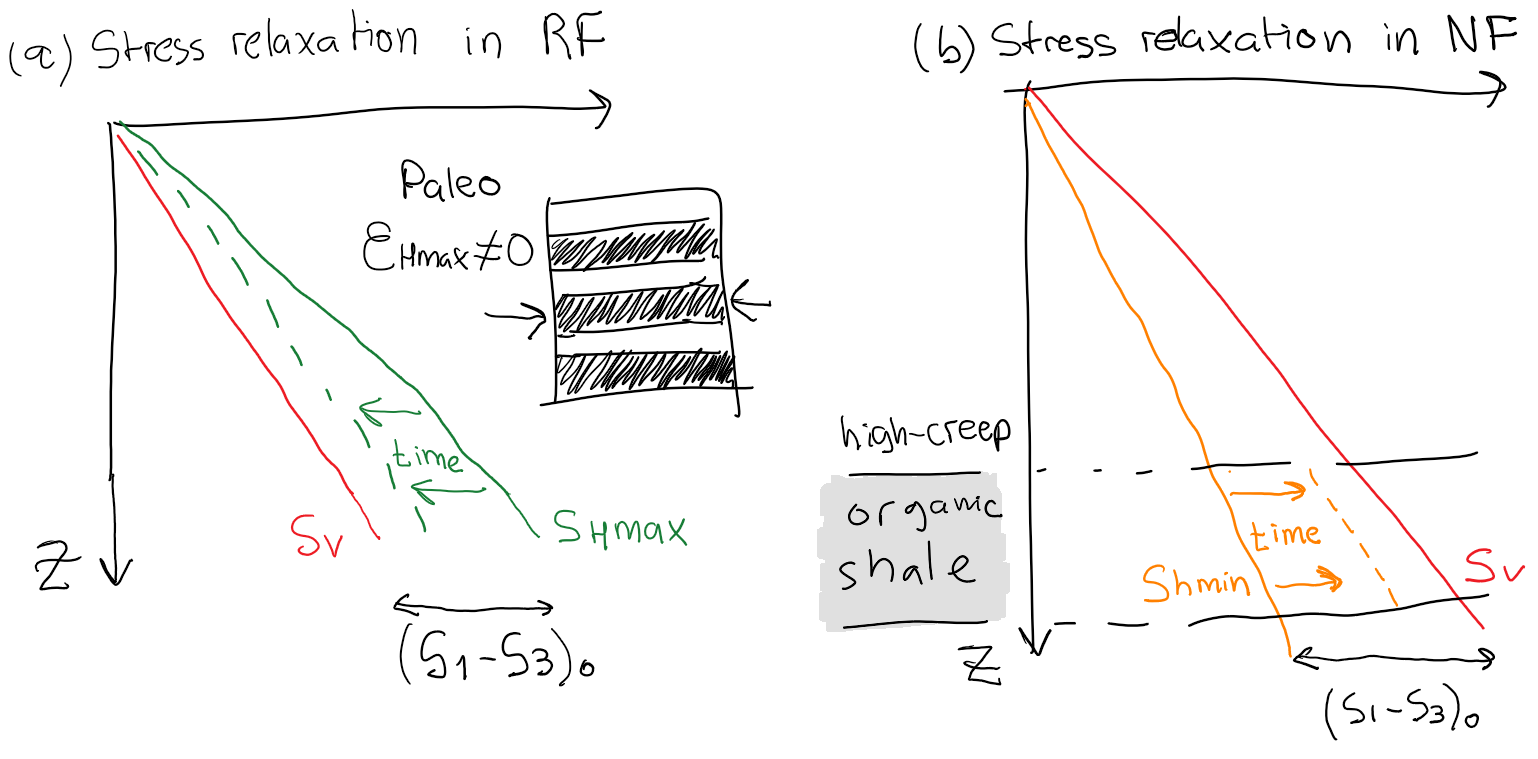 (a) Stress relaxation in RF
Paleo
εHmax≠0
time
Sv
SHmax
Z
(S1-S3)o
(b) Stress relaxation in NF
high-creep
organic
shale
time
Shmin
Sv
Z
(S1-S3)o